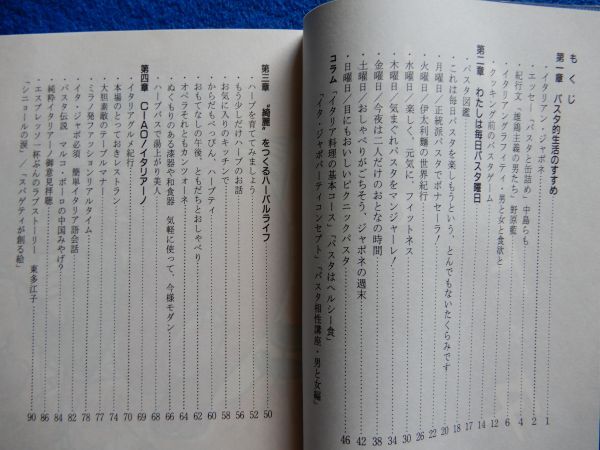 もくじ
第一章 パスタ的生活のすすめ
イタリアン・ジャポネ 1
エッセー「パスタと缶詰め」中島らも 2
紀行文「雄鶏主義の男たち」野原藍 4
イタリアングラフィティ・男と女と食欲と 6
クッキング前のパスタゲーム 12
第二章 わたしは毎日パスタ曜日 14
これは毎日パスタを楽しもうという、とんでもないたくらみです 17
パスタ図鑑 18
月曜日／正統派パスタでボナセーラ! 20
火曜日／伊太利麺の世界紀行 22
水曜日／楽しく、元気に、フィットネス 26
木曜日／気まぐれパスタをマンジャーレ! 30
金曜日／今夜は二人だけのおとなの時間 34
土曜日／おしゃべりがごちそう、ジャポネの週末 38
日曜日／目にもおいしいピクニックパスタ 42
46
コラム「イタリア料理の基本コース」「パスタはヘルシー食」
「イタ・ジャポパーティーコンセプト」「パスタ相性講座・男と女編」
第三章 “綺麗”をつくるハーバルライフ 50
ハーブを育ててみましょう 52
もう少しだけハーブのお話 56
お気に入りのキッチンで 58
からだもべっぴん、ハーブティ 60
おもてなしの午後、ともだちとおしゃべり 62
オペラそれともカンツォーネ 64
ぬくもりのある漆器や和食器 気軽に使って、今様モダン 66
ハーブバスで湯上がり美人 68
第四章 CIAO/イタリアーノ 69
イタリアグルメ紀行 70
本場のとっておきレストラン 74
大胆素敵のテーブルマナー 77
ミラノ発ファッションリアルタイム 78
イタ・ジャポ必須 簡単イタリア語会話 82
パスタ伝説 マルコ・ポーロの中国みやげ? 84
純粋イタリアーノ御意見拝聴 86
エスプレッソ一杯ぶんのラブストーリー 東多江子
「シニョールの涙」／「スパゲティが創る絵」 90